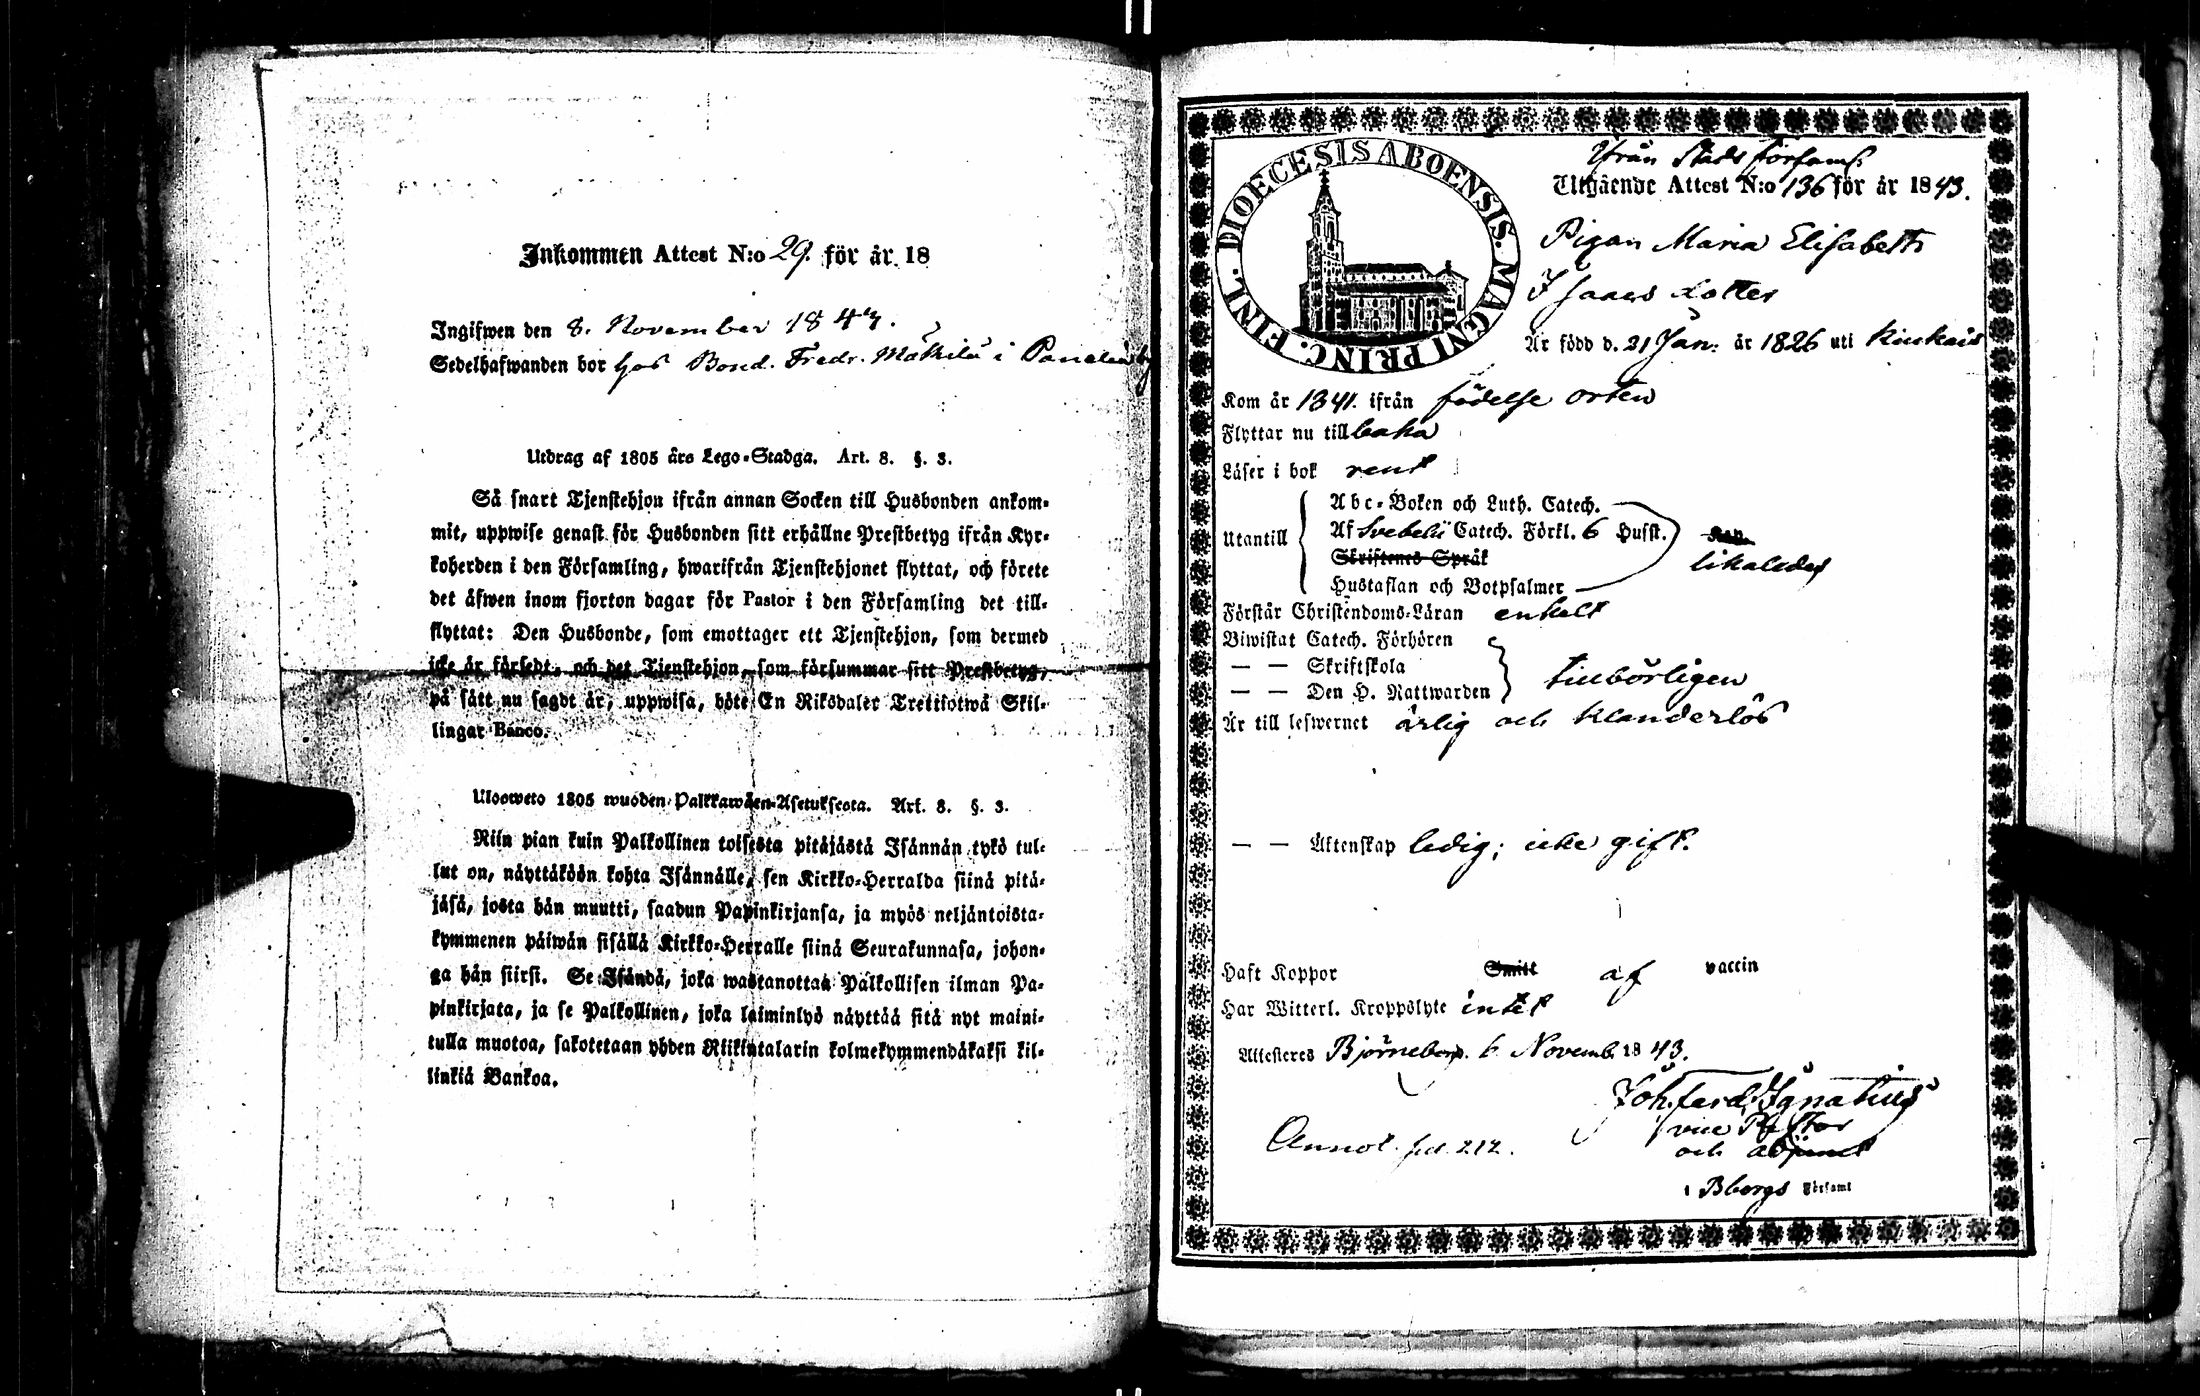 Inkommen Attest N:o 29. för år 18
Ingifwen den 8. November 1843.
Sedelhafwanden bor hos Bond. Fredr. Mäkilä i Panelia by
Utdrag af 1805 års Lego-Stadga. Art. 8. §. 3.
Så snart Tjenstehjon ifrån annan Socken till Husbonden ankom-
mit, uppwise genast för Husbonden sitt erhållne Prestbetyg ifrån Kyr-
koherden i den Församling, hwarifrån Tjenstehjonet flyttat, och förete
det äfwen inom fjorton dagar för Pastor i den Församling det till-
flyttat: Den Husbonde, som emottager ett Tjenstehjon, som dermed
icke är försedt, och det Tjenstehjon, som försummar sitt Prestbetyg,
på sätt nu sagdt är, uppwisa, böte En Riksdaler Trettiotwå Skil-
lingar Banco.
Ulosweto 1805 wuoden Palkkawäen-Asetuksesta. Art. 8. §. 3.
Niin pian kuin Palkollinen toisesta pitäjästä Isännän tykö tul-
lut on, näyttäköön kohta Isännälle, sen Kirkko-Herralda siinä pitä-
jäsä, josta hän muutti, saadun Papinkirjansa, ja myös neljäntoista-
kymmenen päiwän sisällä Kirkko-Herralle siinä Seurakunnasa, johon-
ga hän siirsi. Se Isändä, joka wastanottaa Palkollisen ilman Pa-
pinkirjata, ja se Palkollinen, joka laiminlyö näyttää sitä nyt maini-
tulla muotoa, sakotetaan yhden Riikintalarin kolmekymmendäkaksi kil-
linkiä Bankoa.
DIOECESIS ABOENSIS. MAGNI PRINC. FINL.
Ifrån Stads förfaml.
Utgående Attest N:o 136 för år 1843.
Pigan Maria Elisabeth
Isaacs dotter
Är född d. 21 Jan: år 1826 uti Kiukais
Kom år 1841. ifrån födelse orten
Flyttar nu till baka
Läser i bok rent
Utantill
Abc-Boken och Luth. Catech.
Af Svebelii Catech. Förkl. 6 Husst.
Skriftenes Språk
Hustaflan och Botpsalmer
likaledes
Förstår Christendoms-Läran enkelt
Biwistat Catech. Förhören
— — Skriftskola
— — Den H. Nattwarden
tillbörligen
Är till lefwernet ärlig och klanderlös
— — Äktenskap ledig; icke gift.
Haft Koppor Smitt af vaccin
Har Witterl. Kroppslyte intet
Attesteres Björneborg. 6 Novemb. 1843.
Joh. Ferd. Ignatius
vice Pastor
och adjunct
i Bborgs Församl
Annot. fol. 212.